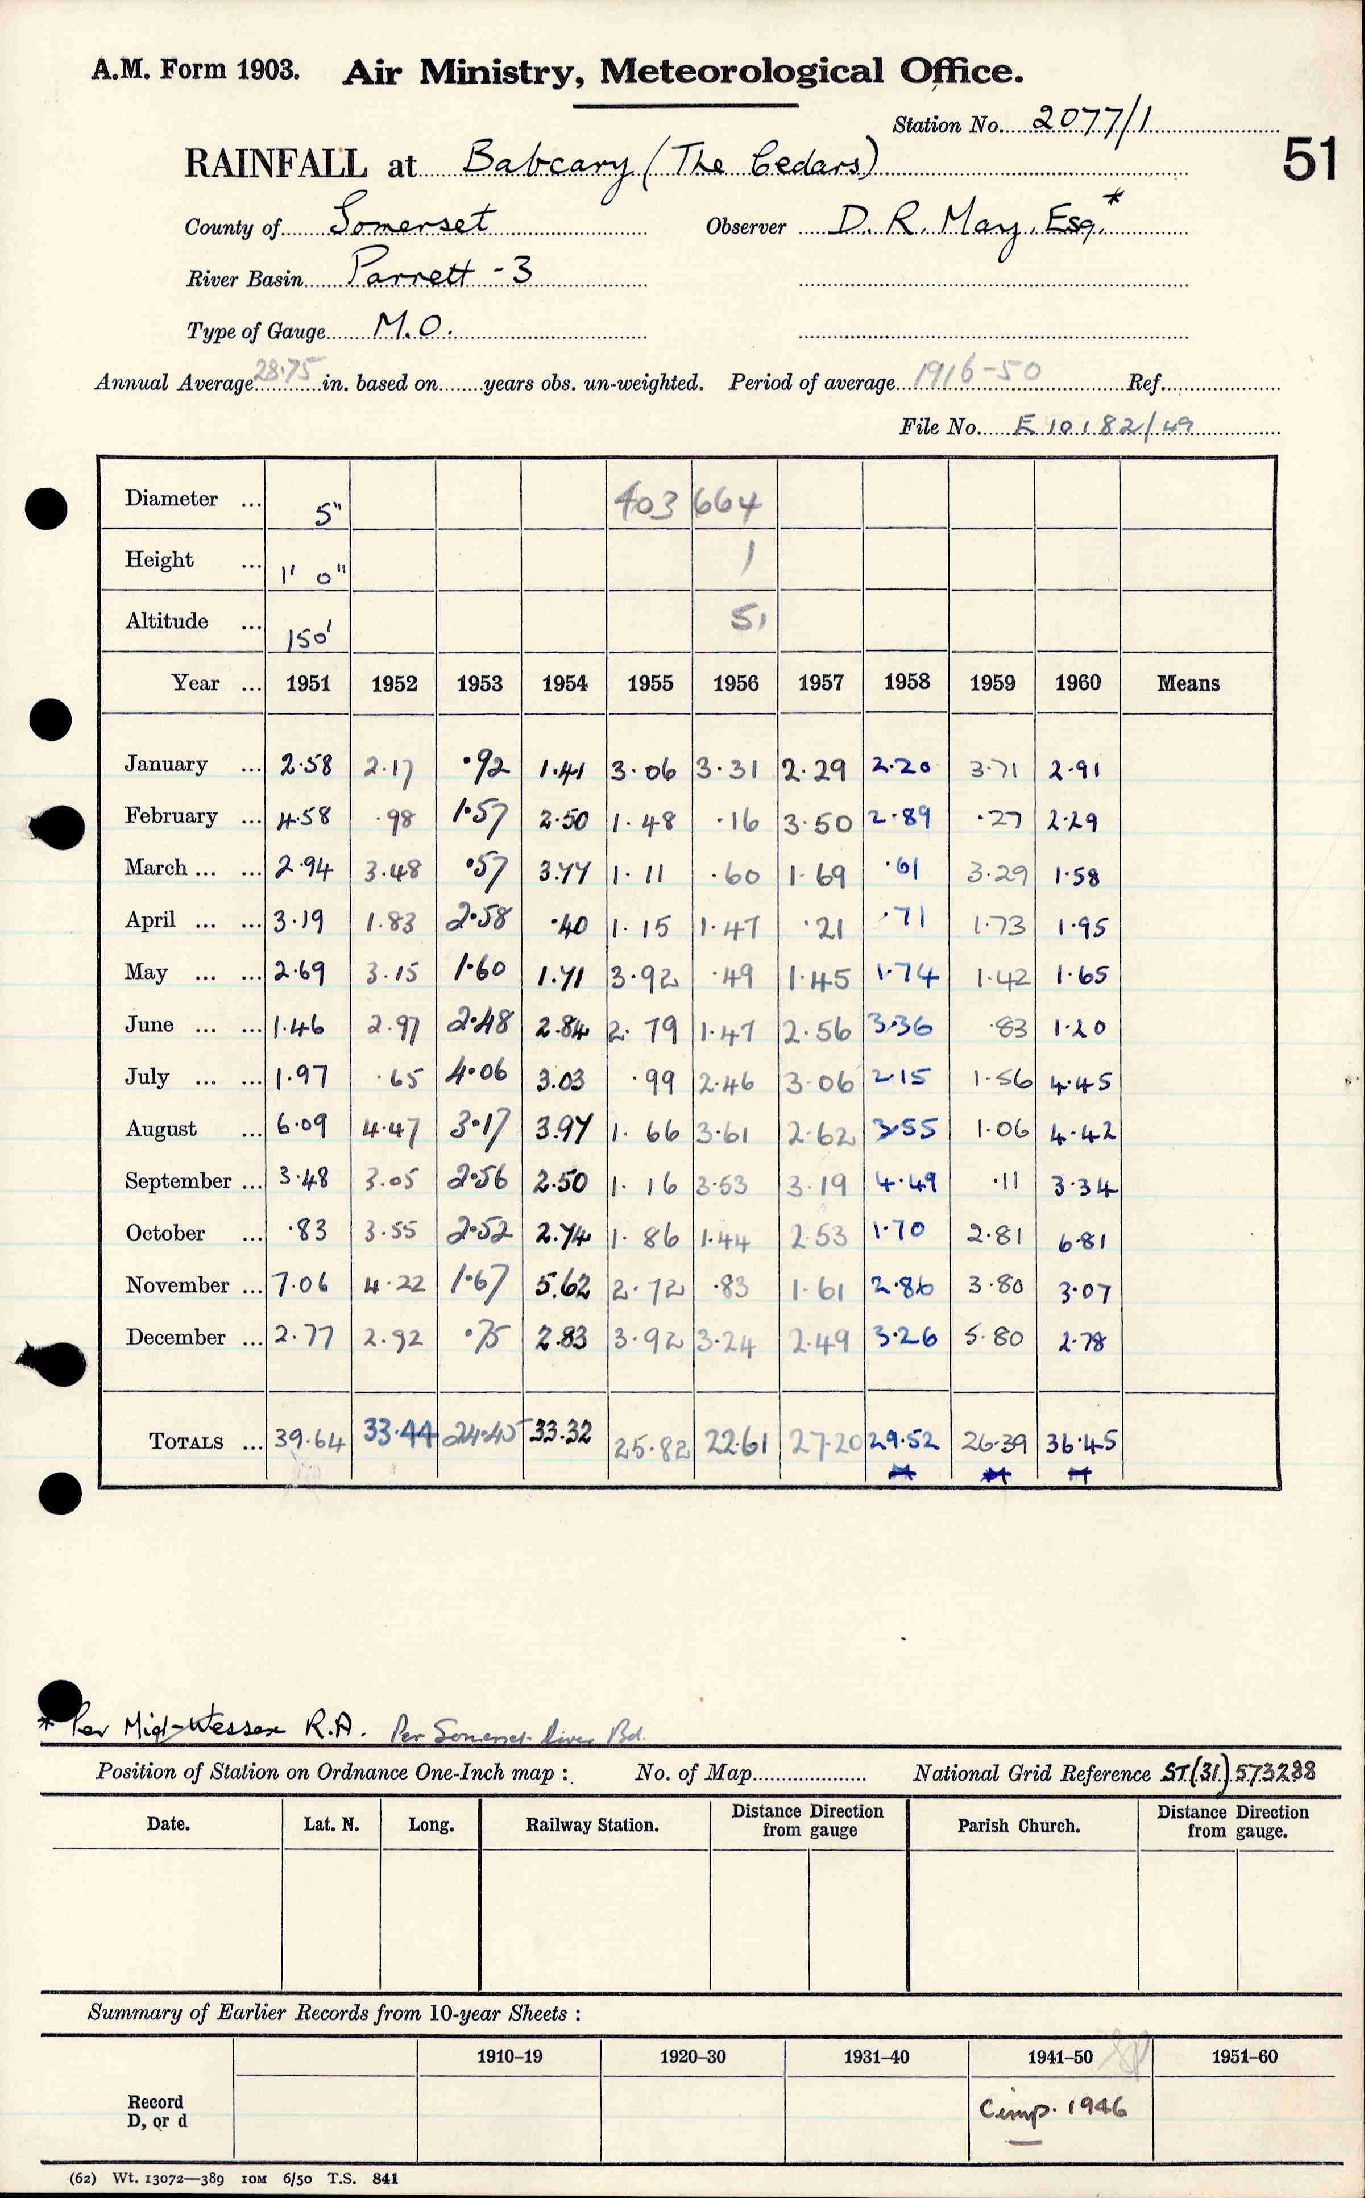 A.M. Form 1903. Air Ministry, Meteorological Office.
Station No. 2077/1
51
RAINFALL at Babcary (The Cedars)
County of Somerset Observer D. R. May, Esq.*
River Basin Parrett - 3
Type of Gauge M.O.
Annual Average 28.75 in. based on years obs. un-weighted. Period of average 1916-50 Ref.
File No. E 10182/49
Diameter ... 5" 403 664
Height ... 1' 0" 1
Altitude ... 150' 51
Year ... 1951 1952 1953 1954 1955 1956 1957 1958 1959 1960 Means
January ... 2.58 2.17 .92 1.41 3.06 3.31 2.29 2.20 3.71 2.91
February ... 4.58 .98 1.57 2.50 1.48 .16 3.50 2.89 .27 2.29
March ... ... 2.94 3.48 .57 3.77 1.11 .60 1.69 .61 3.29 1.58
April ... ... 3.19 1.83 2.58 .40 1.15 1.47 .21 .71 1.73 1.95
May ... ... 2.69 3.15 1.60 1.71 3.92 .49 1.45 1.74 1.42 1.65
June ... ... 1.46 2.97 2.48 2.84 2.79 1.47 2.56 3.36 .83 1.20
July ... ... 1.97 .65 4.06 3.03 .99 2.46 3.06 2.15 1.56 4.45
August ... 6.09 4.47 3.17 3.97 1.66 3.61 2.62 3.55 1.06 4.42
September ... 3.48 3.05 2.56 2.50 1.16 3.53 3.19 4.49 .11 3.34
October ... .83 3.55 2.52 2.74 1.86 1.44 2.53 1.70 2.81 6.81
November ... 7.06 4.22 1.67 5.62 2.72 .83 1.61 2.86 3.80 3.07
December ... 2.77 2.92 .75 2.83 3.92 3.24 2.49 3.26 5.80 2.78
TOTALS ... 39.64 33.44 24.45 33.32 25.82 22.61 27.20 29.52 26.39 36.45
* Per Mid-Wessex R.A. Per Somerset River Bd.
Position of Station on Ordnance One-Inch map : No. of Map National Grid Reference ST(31) 573288
Date. Lat. N. Long. Railway Station. Distance Direction from gauge Parish Church. Distance Direction from gauge.
Summary of Earlier Records from 10-year Sheets :
1910–19 1920–30 1931–40 1941–50 1951–60
Record
D, or d
Comp. 1946
(62) Wt. 13072—389 10M 6/50 T.S. 841